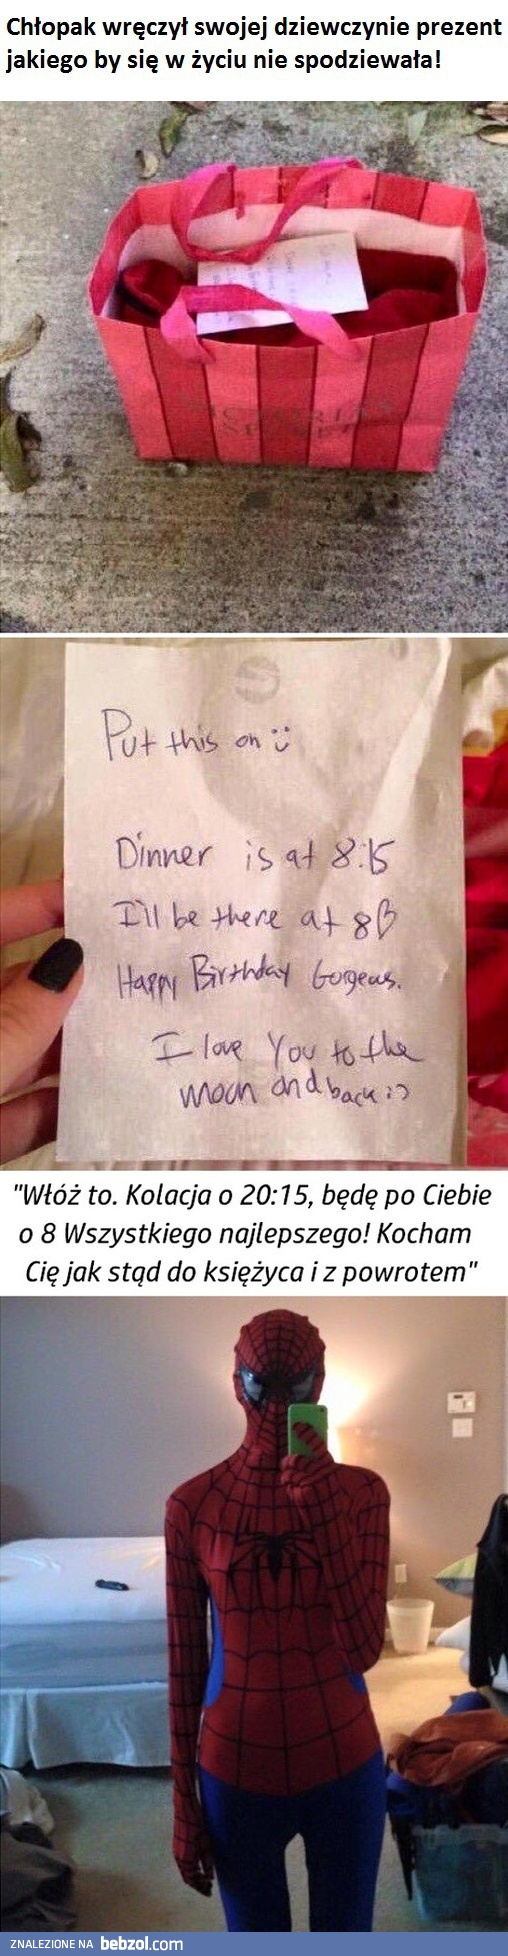 Chłopak wręczył swojej dziewczynie prezent
jakiego by się w życiu nie spodziewała!
VICTORIA'S
SECRET
Put this on
Dinner is at 8:15
I'll be there at 8
Happy Birthday Gorgeous.
I love You to the
moon and back :)
"Włóż to. Kolacja o 20:15, będę po Ciebie
o 8 Wszystkiego najlepszego! Kocham
Cię jak stąd do księżyca i z powrotem"
ZNALEZIONE NA bebzol.com